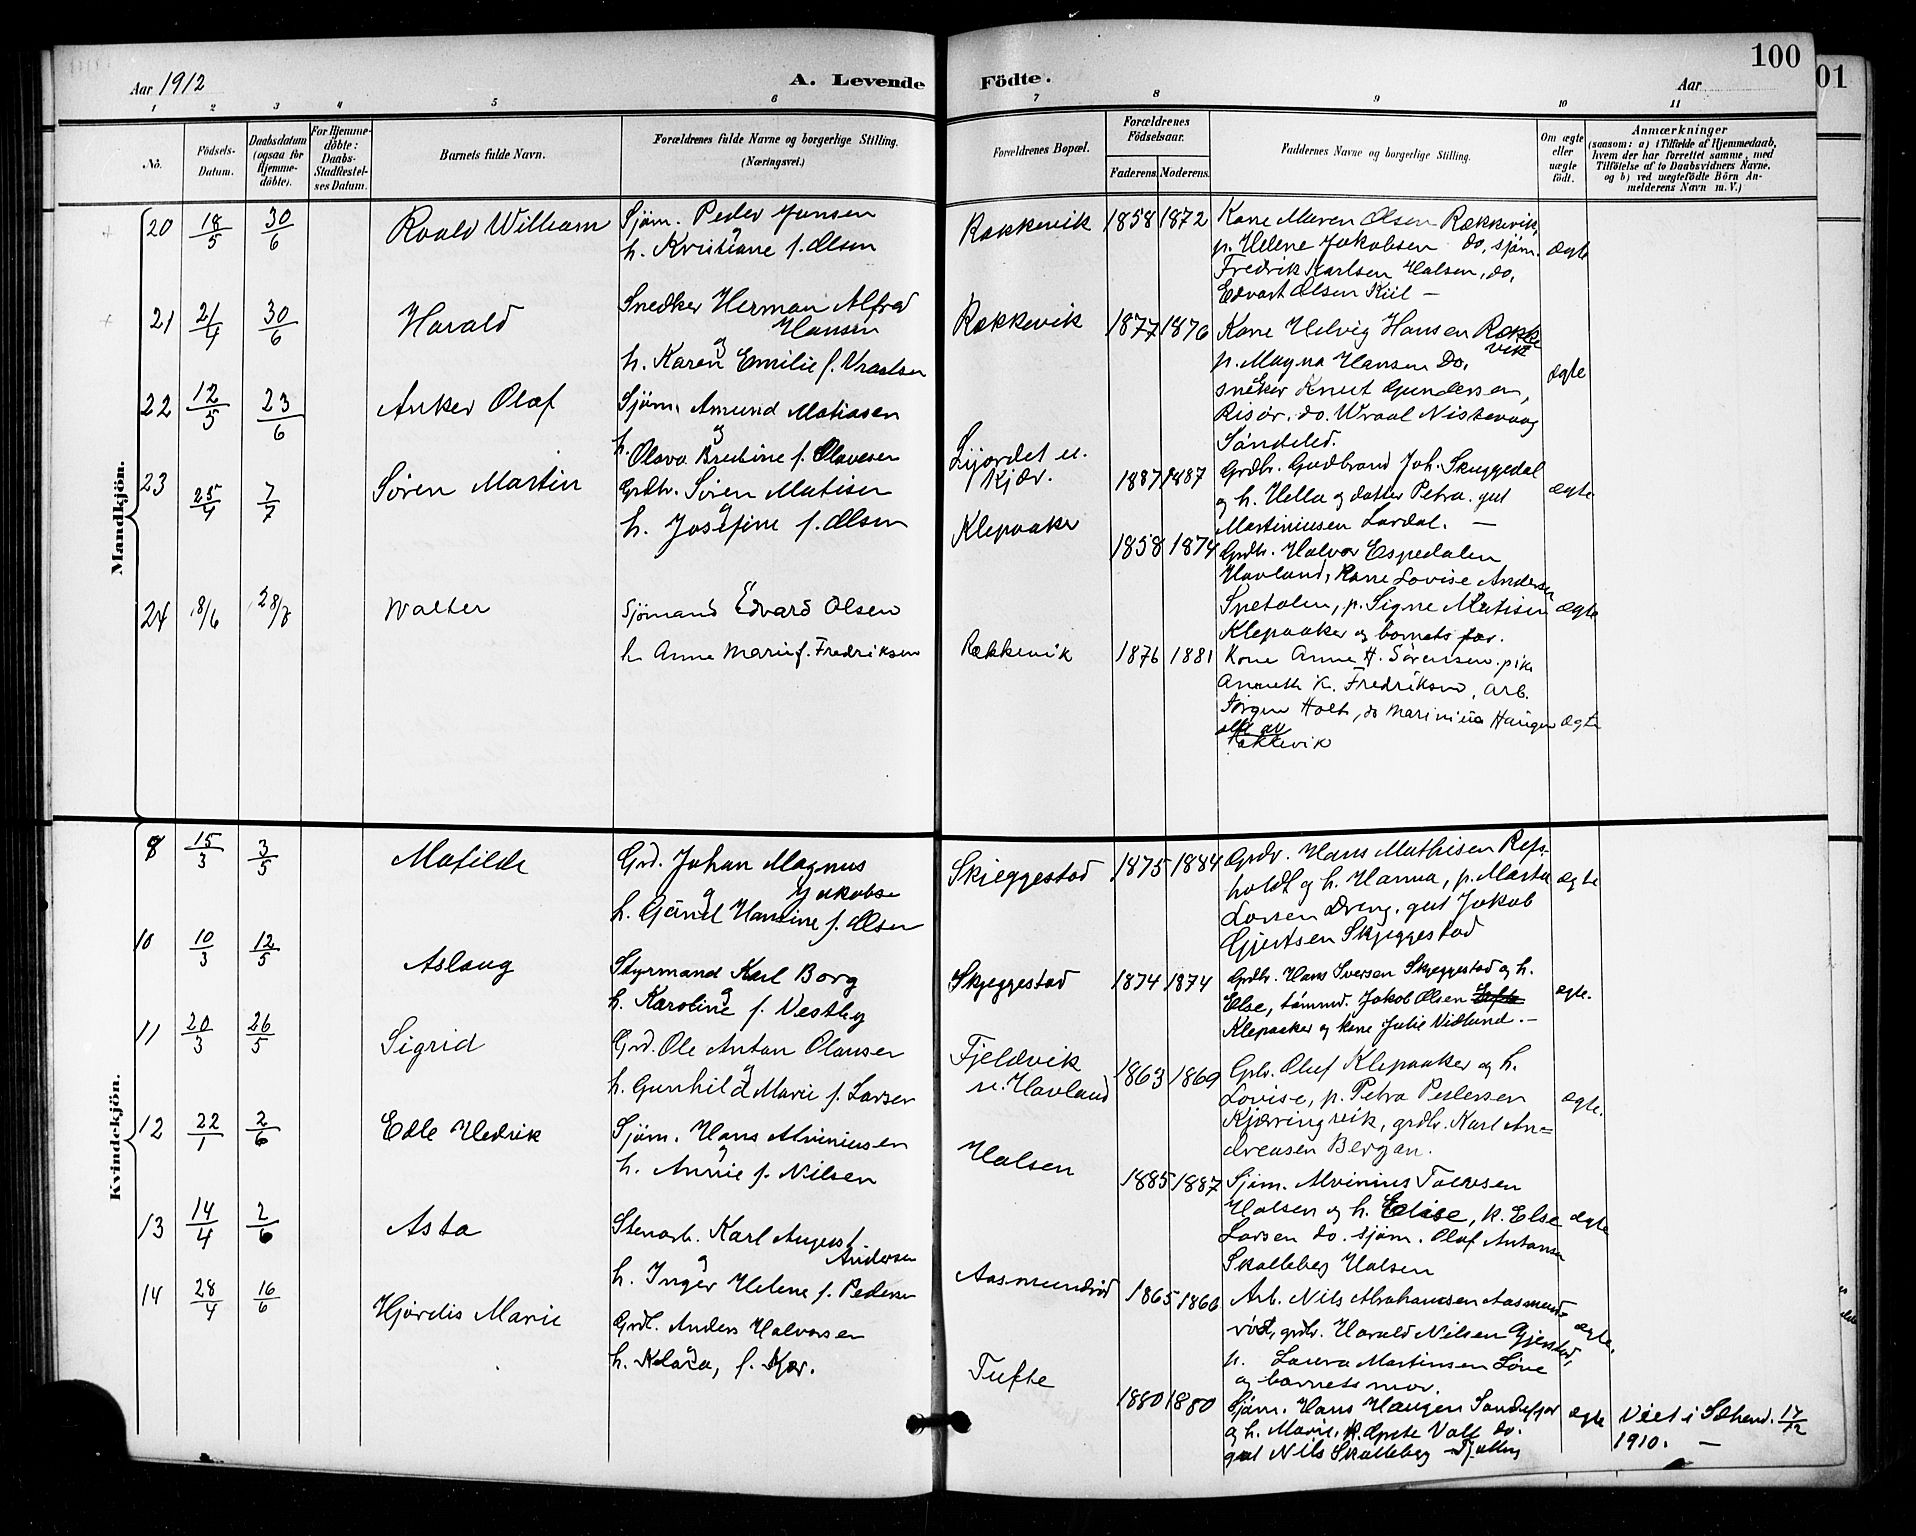 100
01
Aar 1912
A. Levende
Födte.
Aar
1 2 3 4 5 6 7 8 9 10 11
No.
Födsels-
Datum.
Daabsdatum
(ogsaa for
Hjemme-
döbte).
For Hjemme-
döbte:
Daabs-
Stadfæstel-
ses Datum.
Barnets fulde Navn.
Forældrenes fulde Navne og borgerlige Stilling.
(Næringsvei.)
Forældrenes Bopæl.
Forældrenes
Födselsaar.
Faderens.
Moderens.
Faddernes Navne og borgerlige Stilling.
Om ægte
eller
uægte
födt.
Anmærkninger
(saasom: a) i Tilfælde af Hjemmedaab,
hvem der har forrettet samme, med
Tilföielse af to Daabsvidners Navne,
og b) ved uægtefödte Börn An-
melderens Navn m. V.)
Mandkjön.
20 18/5 30/6 Roald William
Sjøm. Peder Jansen
og
h. Kristiane f. Olsen
Rækkevik 1858 1872
Kone Maren Olsen Rækkevik,
p. Helene Jakobsen do, sjøm.
Fredrik Karlsen Halsen, do.
Edvart Olsen Kiil –
ægte
21 21/4 30/6 Harald
Snedker Herman Alfred
Hansen
og
h. Karen Emilie f. Vraalsen
Rækkevik 1877 1876
Kone Helvig Hansen Række
vik
p. Magna Hansen do.
sneker Knut Gundersen,
Risør, do. Wraal Nistevaag
Søndeled.
ægte
22 12/5 23/6 Anker Olaf
Sjøm. Amund Matiasen
og
h. Olava Bredine f. Olavesen
Lijordet u.
Kjær.
1887 1887
Grdbr. Gudbrand Joh. Skuggedal
og h. Hella og datter Petra. gut
Martiniusen Lardal. –
ægte
23 25/4 7/7 Søren Martin
Grdbr. Søren Matisen
og
h. Josefine f. Olsen
Klepaaker
1858 1874
Grdbr. Halvor Espedalen
Havland, Kone Lovise Andersen
Snetolen, p. Signe Matisen
Klepaaker og barnets far.
ægte
24 8/6 28/7 Walter
Sjømand Edvard Olsen
h. Anne Marie f. Fredriksen
Rækkevik 1876 1881
Kone Anne H. Sørensen. pike
Anneth K. Fredriksen, arb.
Jørgen Holt, do Marinius Haugen
alle av
Rækkevik
ægte
Kvindekjön.
8 15/3 3/5 Matilde
Grd. Johan Magnus
Jakobsen
og
h. Hansine f. Olsen
Skjeggestad 1875 1884
Grdbr. Hans Mathisen Refs-
holdt og h. Hanna, p. Marta
Larsen Dreng, gut Jakob
Gjertsen Skjeggestad
ægte
10 10/3 12/5 Aslaug
Styrmand Karl Borg
og
h. Karoline f. Vestby
Skjeggestad 1874 1874
Grdbr. Hans Iversen Skjeggestad og h.
Else, tømmd. Jakob Olsen
Klepaaker og kone Julie Vidlund. –
ægte.
11 20/3 26/5 Sigrid
Grd. Ole Anton Olausen
og
h. Gunhild Marie f. Larsen
Fjeldvik
u. Havland
1863 1869
Grbr. Oluf Klepaaker og h.
Lovise, p. Petra Pedersen
Kjæringvik, grdbr. Karl An=
dreasen Bergan.
ægte.
12 22/1 2/6 Edle Hedvik
Sjøm. Hans Alviniusen
og
h. Annie f. Nilsen
Halsen
1885 1887
Sjøm. Alvinius Tolevsen
Halsen og h. Elise, p. Else
Larsen do. sjøm. Olaf Antonsen
Skalleberg Halsen
ægte
13 14/4 2/6 Asta
Stenarb. Karl August
Andersen
og
h. Inger Helene f. Pedersen
Aasmundrød 1865 1866
Arb. Nils Abrahamsen Aasmund-
rød, grdbr. Harald Nilsen Gjerstad,
p. Laura Martinsen Løve
og barnets mor.
ægte.
14 28/4 16/6 Hjørdis Marie
Grdb. Anders Halvorsen
og
h. Klara, f. Kjær.
Tufte
1880 1880
Sjøm. Hans Haugen Sandefjor
og h. Marie, p. Grete Valle do.
gut Nils Skalleberg Tjølling
ægte
Viet i Seherd. 17/12
1910. –